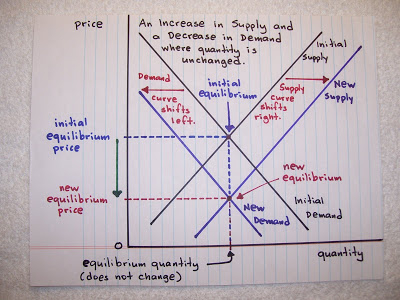 price
An Increase in Supply and
a Decrease in Demand
where quantity is
unchanged.
Initial
Supply
Demand
curve
shifts
left.
initial
equilibrium
Supply
curve
shifts
right.
New
Supply
initial
equilibrium
price
new
equilibrium
new
equilibrium
price
New
Demand
Initial
Demand
O
equilibrium quantity
(does not change)
quantity